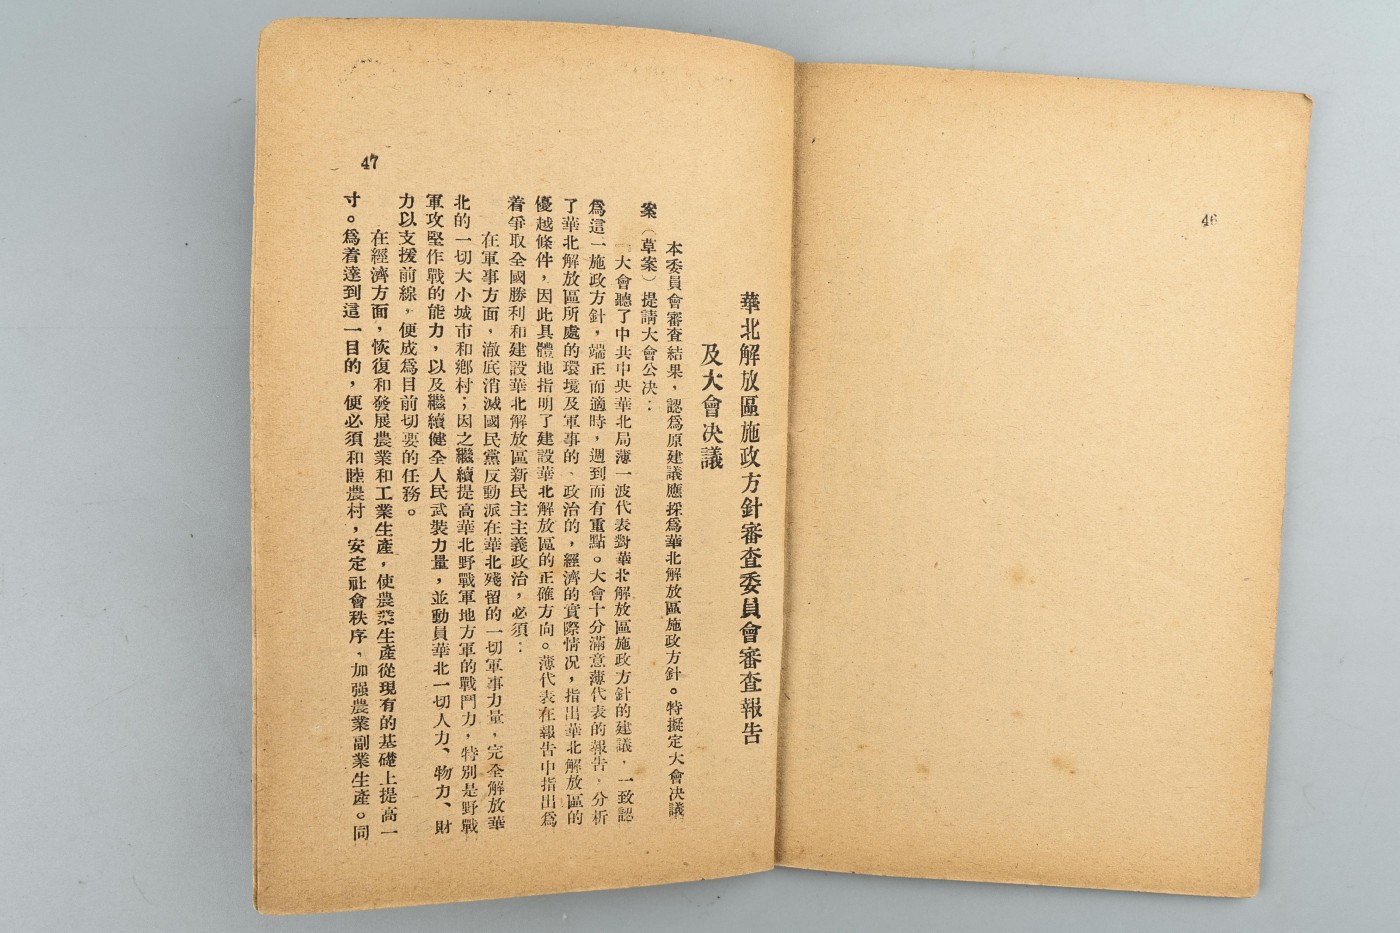 46
華北解放區施政方針審查委員會審查報告
及大會決議
本委員會審查結果，認爲原建議應採爲華北解放區施政方針。特擬定大會決議
案（草案）提請大會公決：
『大會聽了中共中央華北局薄一波代表對華北解放區施政方針的建議，一致認
爲這一施政方針，端正而適時，週到而有重點。大會十分滿意薄代表的報告，分析
了華北解放區所處的環境及軍事的、政治的，經濟的實際情況，指出華北解放區的
優越條件，因此具體地指明了建設華北解放區的正確方向。薄代表在報告中指出爲
着爭取全國勝利和建設華北解放區新民主主義政治，必須：
在軍事方面，澈底消滅國民黨反動派在華北殘留的一切軍事力量，完全解放華
北的一切大小城市和鄉村；因之繼續提高華北野戰軍地方軍的戰鬥力，特別是野戰
軍攻堅作戰的能力，以及繼續健全人民武裝力量，並動員華北一切人力、物力、財
力以支援前線，便成爲目前切要的任務。
在經濟方面，恢復和發展農業和工業生產，使農業生產從現有的基礎上提高一
寸。爲着達到這一目的，便必須和睦農村，安定社會秩序，加强農業副業生產。同
47